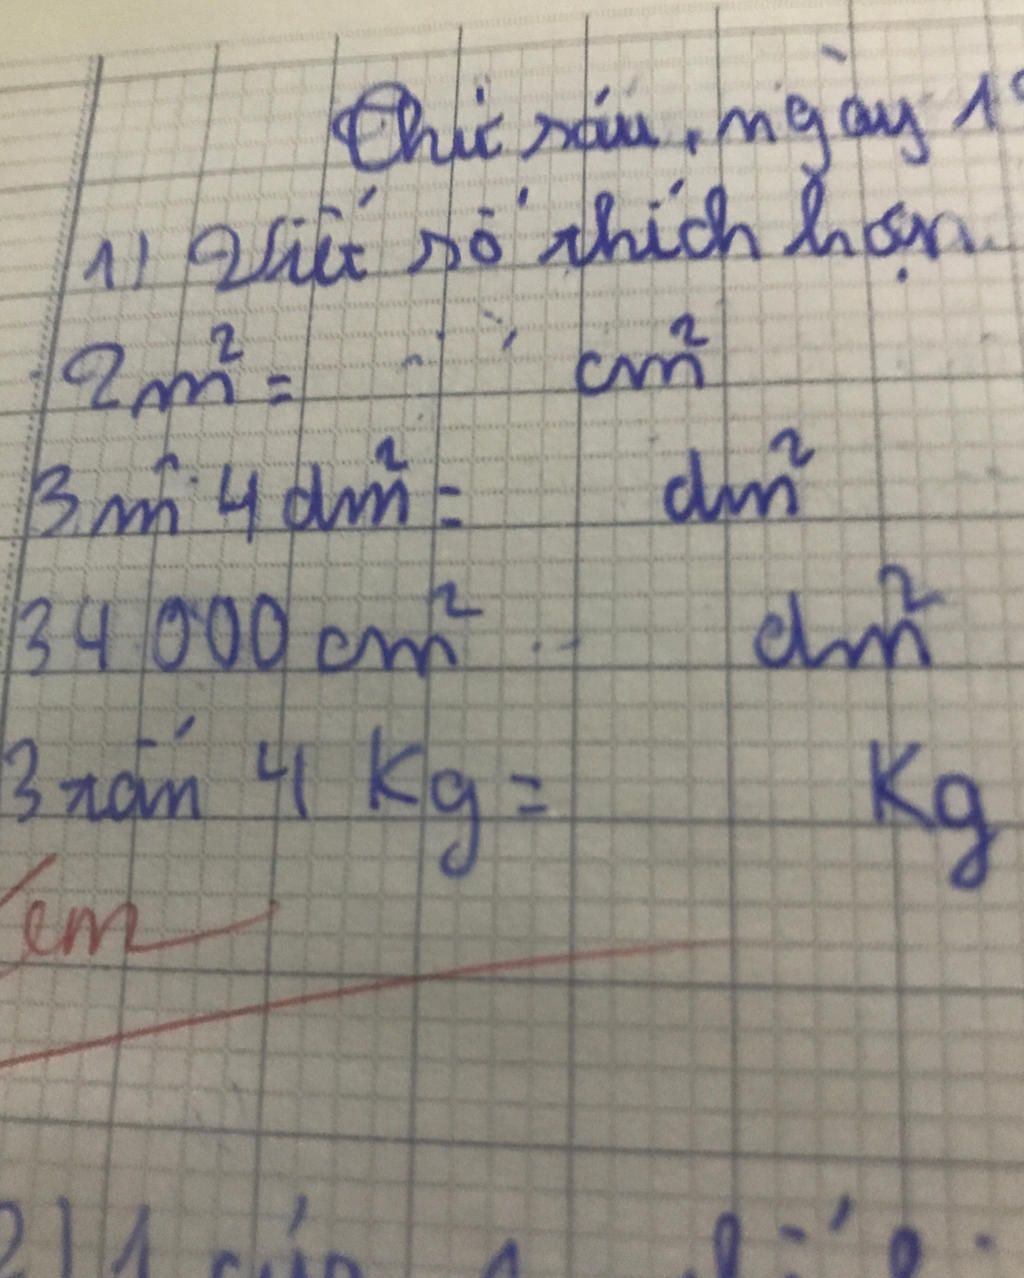 Thứ sáu, ngày 1
1) Viết số thích hợp
2m² = cm²
3m² 4 dm² = dm²
34 000 cm² dm²
3 tấn 4 Kg = Kg
2) 1